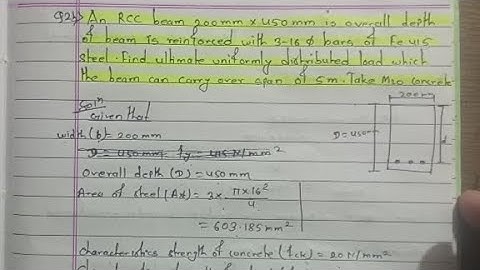 Q2b) An RCC beam 200mm × 450mm is overall depth
of beam is reinforced with 3-16 ϕ bars of Fe 415
steel. Find ultimate uniformly distributed load which
the beam can carry over a span of 5m. Take M20 concrete
Soln
Given that
200mm
width (b) = 200mm
D = 450
d
D = 450mm fy = 415 N/mm²
Overall depth (D) = 450mm
Area of steel (Ast) = 3 × π×16²/4
= 603.185mm²
characteristics strength of concrete (fck) = 20N/mm²